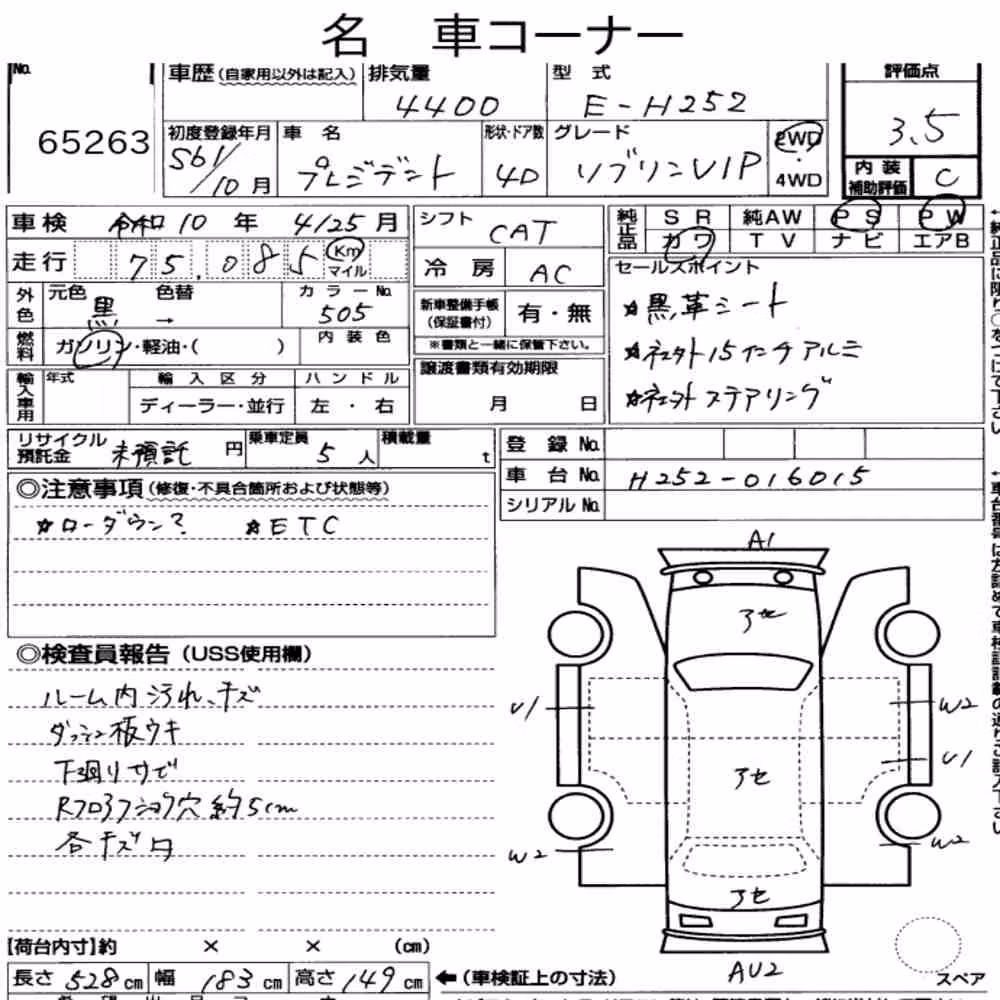 名 車コーナー
No. 65263
車歴(自家用以外は記入)
排気量 4400
型式 E-H252
評価点 3.5
初度登録年月 S61/10月
車名 プレジデント
形状・ドア数 4D
グレード ソブリンVIP
2WD・4WD
内装補助評価 C
車検 令和10年 4/25月
シフト CAT
純正品 SR 純AW PS PW
カワ TV ナビ エアB
走行 75.085 Km マイル
冷房 AC
セールスポイント
外色 元色 黒 → 色替 カラーNo. 505
新車整備手帳(保証書付) 有・無
☆黒革シート
燃料 ガソリン・軽油・( ) 内装色
※書類と一緒に保管下さい。
☆社外15インチアルミ
輸入車用 年式 輸入区分 ハンドル
ディーラー・並行 左・右
譲渡書類有効期限
月 日
☆社外ステアリング
リサイクル預託金 未預託 円
乗車定員 5人
積載量 t
登録No.
車台No. H252-016015
シリアルNo.
◎注意事項(修復・不具合箇所および状態等)
☆ローダウン? ☆ETC
◎検査員報告(USS使用欄)
ルーム内汚れ、キズ
ダッシュ板ウキ
下廻りサビ
各キズ凹
A1
アセ
U1
W2
アセ
U1
W2
W2
アセ
AU2
スペア
【荷台内寸】約 × × (cm)
長さ 528cm 幅 183cm 高さ 149cm
←(車検証上の寸法)